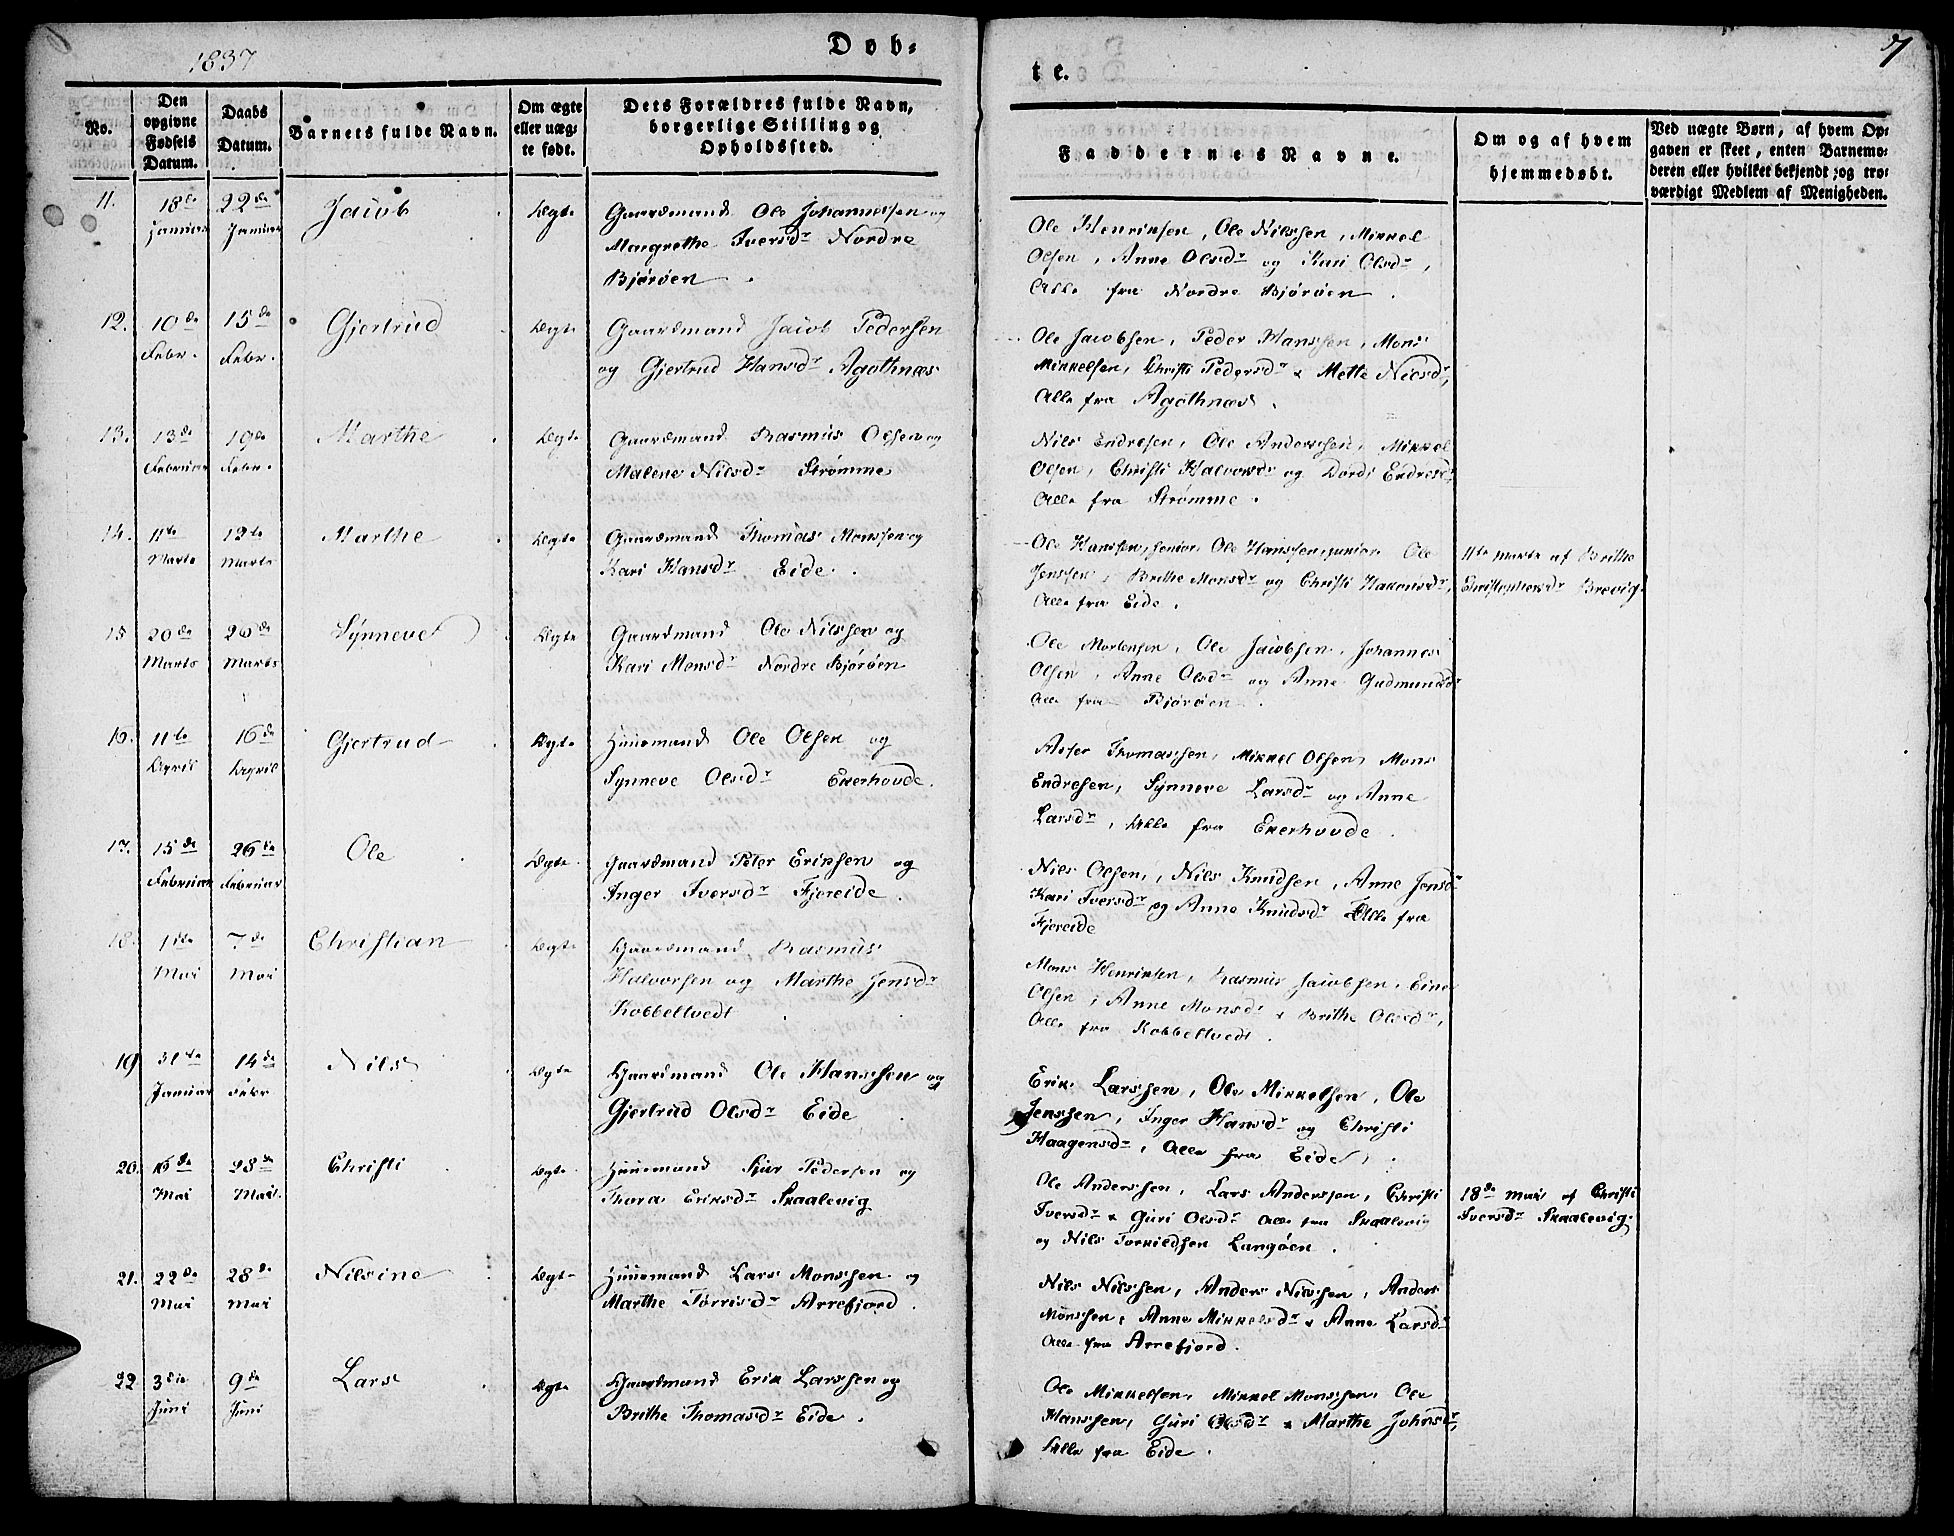 1837
Døb=
te.
7
No.
Den opgivne Fødsels Datum.
Daabs Datum.
Barnets fulde Navn.
Om ægte eller uæg-te født.
Dets Forældres fulde Navn, borgerlige Stilling og Opholdssted.
Faddernes Navne.
Om og af hvem hjemmedøbt.
Ved uægte Børn, af hvem Op-gaven er skeet, enten Barnemo-deren eller hvilket bekjendt og tro-værdigt Medlem af Menigheden.
11.
18de Januar
22de Januar
Jacob
Ægte
Gaardmand Ole Johannessen og
Margrethe Iversdr Nordre
Bjørøen.
Ole Henriksen, Ole Nilssen, Mikkel
Olsen, Anne Olsdr og Kari Olsdr,
Alle fra Nordre Bjørøen.
12.
10de Febr.
15de Febr.
Gjertrud
Ægte
Gaardmand Jacob Pedersen
og Gjertrud Hansdr Agothnæs
Ole Jacobsen, Peder Hanssen, Mons
Mikkelsen, Christi Pedersdr & Mette Nilsdr,
Alle fra Agothnæs.
13.
13de Februar
19de Febr.
Marthe
Ægte
Gaardmand Rasmus Olsen og
Malene Nilsdr Strømme
Nils Endresen, Ole Anderssen, Mikkel
Olsen, Christi Halvorsdr og Dordi Endresdr
Alle fra Strømme.
14.
11te Marts
12te Marts
Marthe
Ægte
Gaardmand Thomas Monssen og
Kari Hansdr Eide.
Ole Hanssen senior, Ole Hanssen junior, Ole
Jenssen, Brithe Monsdr og Christi Hakonsdr,
Alle fra Eide.
11te Marts af Brithe
Christophersdr Brevig.
15
20de Marts
26de Marts
Synneve
Ægte
Gaardmand Ole Nilssen og
Kari Monsdr Nordre Bjørøen
Ole Mortensen, Ole Jacobsen, Johannes
Olsen, Anne Olsdr og Anne Gudmundsdr
Alle fra Bjørøen.
16.
11te April
16de April
Gjertrud
Ægte
Huusmand Ole Olsen og
Synneve Olsdr Ekerhovde.
Asser Thomassen, Mikkel Olsen, Mons
Endresen, Synneve Larsdr og Anne
Larsdr, Alle fra Ekerhovde.
17.
15de Februar
26de Februar
Ole
Ægte
Gaardmand Peter Eriksen og
Inger Iversdr Fjereide.
Nils Olsen, Nils Knudsen, Anne Jensdr
Kari Iversdr og Anne Knudsdr Alle fra
Fjereide
18.
1ste Mai
7de Mai
Christian
Ægte
Gaardmand Rasmus
Halvorsen og Marthe Jensdr
Kobbeltvedt
Mons Henriksen, Rasmus Jacobsen, Einer
Olsen, Anne Monsdr & Brithe Olsdr,
Alle fra Kobbeltvedt.
19
31te Januar
14de Febr
Nils
Ægte
Gaardmand Ole Hanssen og
Gjertrud Olsdr Eide.
Erik Larssen, Ole Mikkelsen, Ole
Jenssen, Inger Hansdr og Christi
Haagensdr, Alle fra Eide.
20.
16de Mai
28de Mai.
Christi
Ægte
Huusmand Sjur Pedersen og
Thora Eriksdr Skaalevig
Ole Anderssen, Lars Anderssen, Christi
Iversdr & Guri Olsdr Alle fra Skaalevig
og Nils Torkildsen Langøen.
18de Mai af Christi
Iversdr Skaalevig.
21.
22de Mai
28de Mai
Nilsine
Ægte
Huusmand Lars Monssen og
Marthe Torrisdr Arrefjord.
Nils Nilssen, Anders Nilssen, Anders
Monssen, Anne Mikkelsdr & Anne Larsdr
Alle fra Arrefjord.
22
3die Juni
9de Juni
Lars
Ægte
Gaardmand Erik Larssen og
Brithe Thomasdr Eide.
Ole Mikkelsen, Mikkel Monssen, Ole
Hanssen, Guri Olsdr & Marthe Johnsdr,
Alle fra Eide.